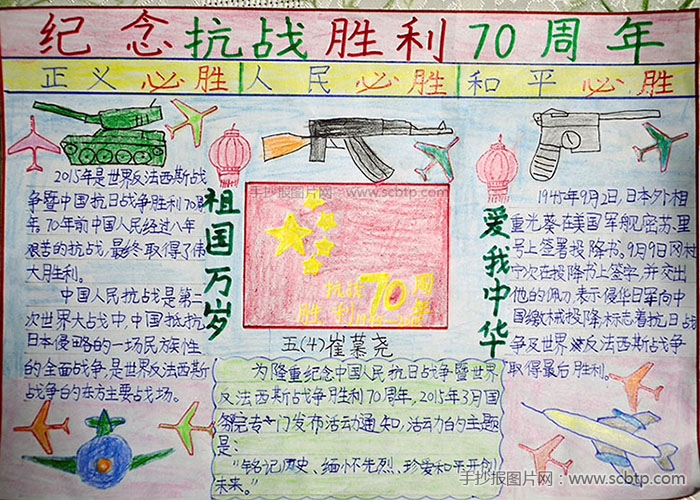 纪念抗战胜利70周年
正义必胜 人民必胜 和平必胜
2015年是世界反法西斯战
争暨中国抗日战争胜利70周
年,70年前中国人民经过八年
艰苦的抗战,最终取得了伟
大胜利。
中国人民抗战是第二
次世界大战中,中国抵抗
日本侵略的一场民族性
的全面战争,是世界反法西斯
战争的东方主要战场。
祖国万岁
手抄报图片网:www.scbtp.com
抗战70周
胜利 年
五(4)崔慕尧
为隆重纪念中国人民抗日战争暨世界
反法西斯战争胜利70周年,2015年3月国
务院专门发布活动通知,活动的主题
是:
"铭记历史、缅怀先烈、珍爱和平开创
未来。"
爱我中华
1945年9月2日,日本外相
重光葵在美国军舰密苏里
号上签署投降书。9月9日冈村
宁次在投降书上签字,并交出
他的佩刀表示侵华日军向中
国缴械投降,标志着抗日战
争及世界反法西斯战争
取得最后胜利。
手抄报图片网:www.scbtp.com